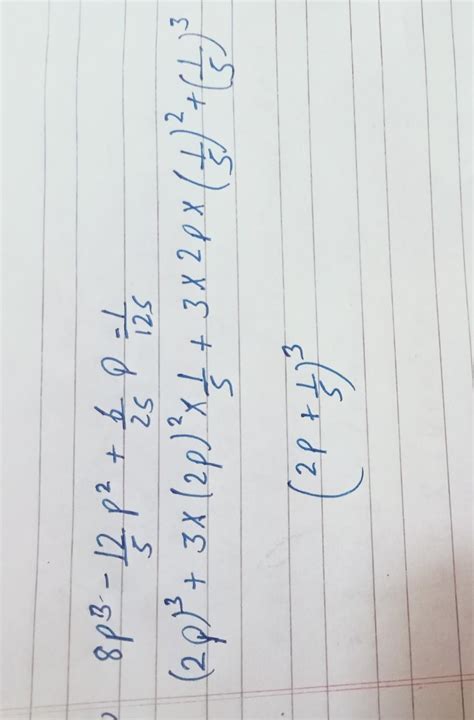 8p³ - 12/5 p² + 6/25 p - 1/125
(2p)³ + 3 × (2p)² × 1/5 + 3 × 2p × (1/5)² + (1/5)³
(2p + 1/5)³